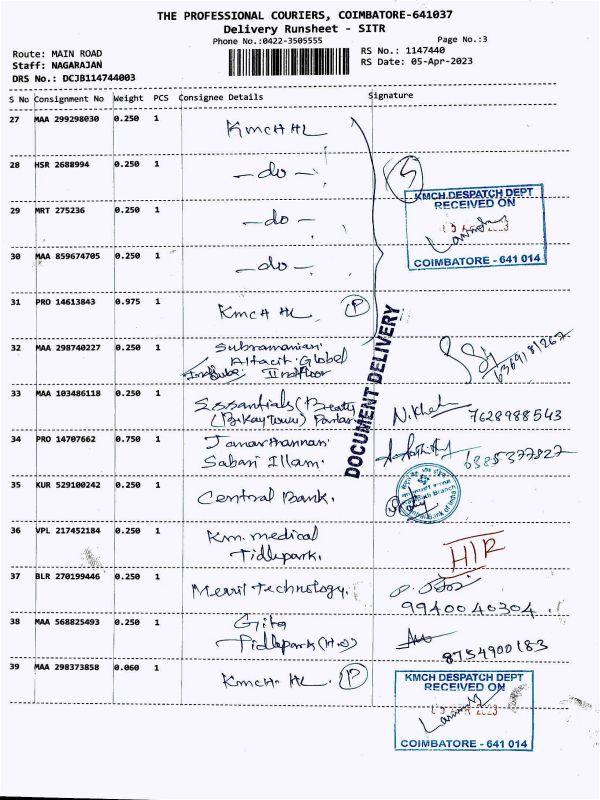 THE PROFESSIONAL COURIERS, COIMBATORE-641037
Delivery Runsheet - SITR
Phone No.:0422-3505555
Page No.:3
Route: MAIN ROAD
RS No.: 1147440
Staff: NAGARAJAN
RS Date: 05-Apr-2023
DRS No.: DCJB114744003
S No Consignment No Weight PCS Consignee Details Signature
27 MAA 299298030 0.250 1 KMCH HL
28 HSR 2688994 0.250 1 -do-
29 MRT 275236 0.250 1 -do-
KMCH.DESPATCH DEPT
RECEIVED ON
30 MAA 859674705 0.250 1 -do-
COIMBATORE - 641 014
31 PRO 14613843 0.975 1 KMCH HL P
DOCUMENT DELIVERY
32 MAA 298740227 0.250 1 Subramanian.
Altacit Global
IInd floor
6369181267
33 MAA 103486118 0.250 1 Essantials (Beauty
7628988543
34 PRO 14707662 0.750 1
Sabari Illam.
6385377827
35 KUR 529100242 0.250 1 Central Bank.
36 VPL 217452184 0.250 1 Km. medical
Tidlepark.
HIR
37 BLR 270199446 0.250 1 Merril Technology.
9940040304.
38 MAA 568825493 0.250 1 Gita
Tidlepark (H.O)
8754900183
39 MAA 298373858 0.060 1 KMCH- HL. P
KMCH DESPATCH DEPT
RECEIVED ON
COIMBATORE - 641 014